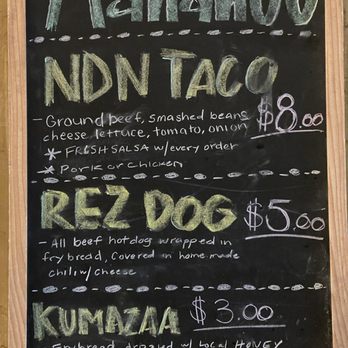 NDN TACO
- Ground beef, smashed beans $8.00
cheese, lettuce, tomato, onion
* FRESH SALSA w/every order
* Pork or Chicken
REZ DOG $5.00
- All beef hotdog wrapped in
fry bread, Covered in home made
chili w/ cheese
KUMAZAA $3.00
Frybread drizzled w/ Local HONEY